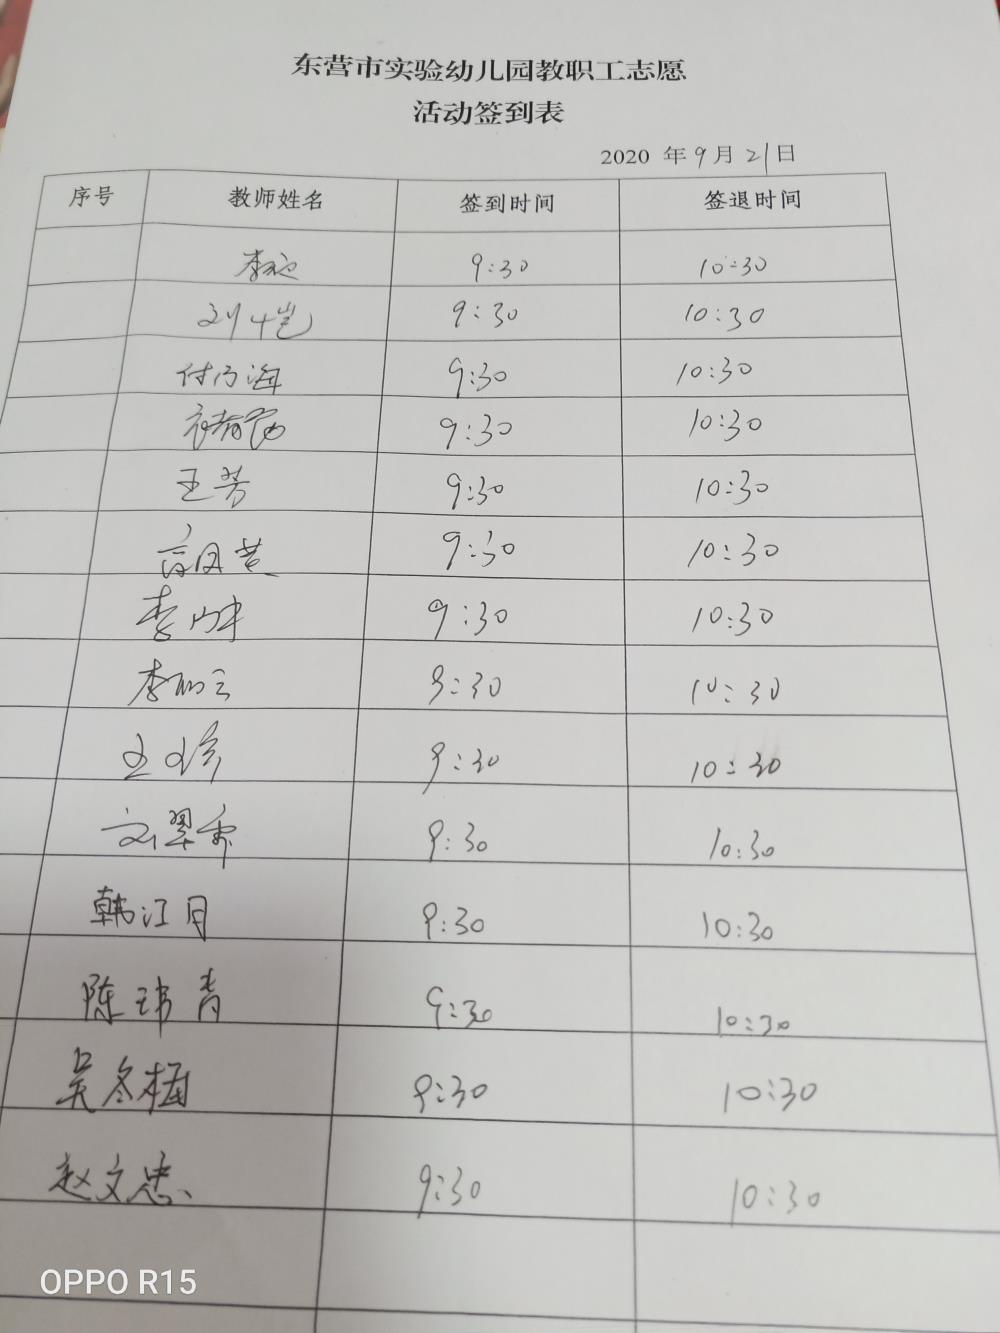 东营市实验幼儿园教职工志愿
活动签到表
2020 年 9 月 21 日
序号 教师姓名 签到时间 签退时间
9:30 10:30
9:30 10:30
付乃海 9:30 10:30
9:30 10:30
王芳 9:30 10:30
9:30 10:30
9:30 10:30
李 9:30 10:30
王 9:30 10:30
刘翠香 9:30 10:30
韩江月 9:30 10:30
陈玮青 9:30 10:30
吴冬梅 9:30 10:30
赵文忠 9:30 10:30
OPPO R15